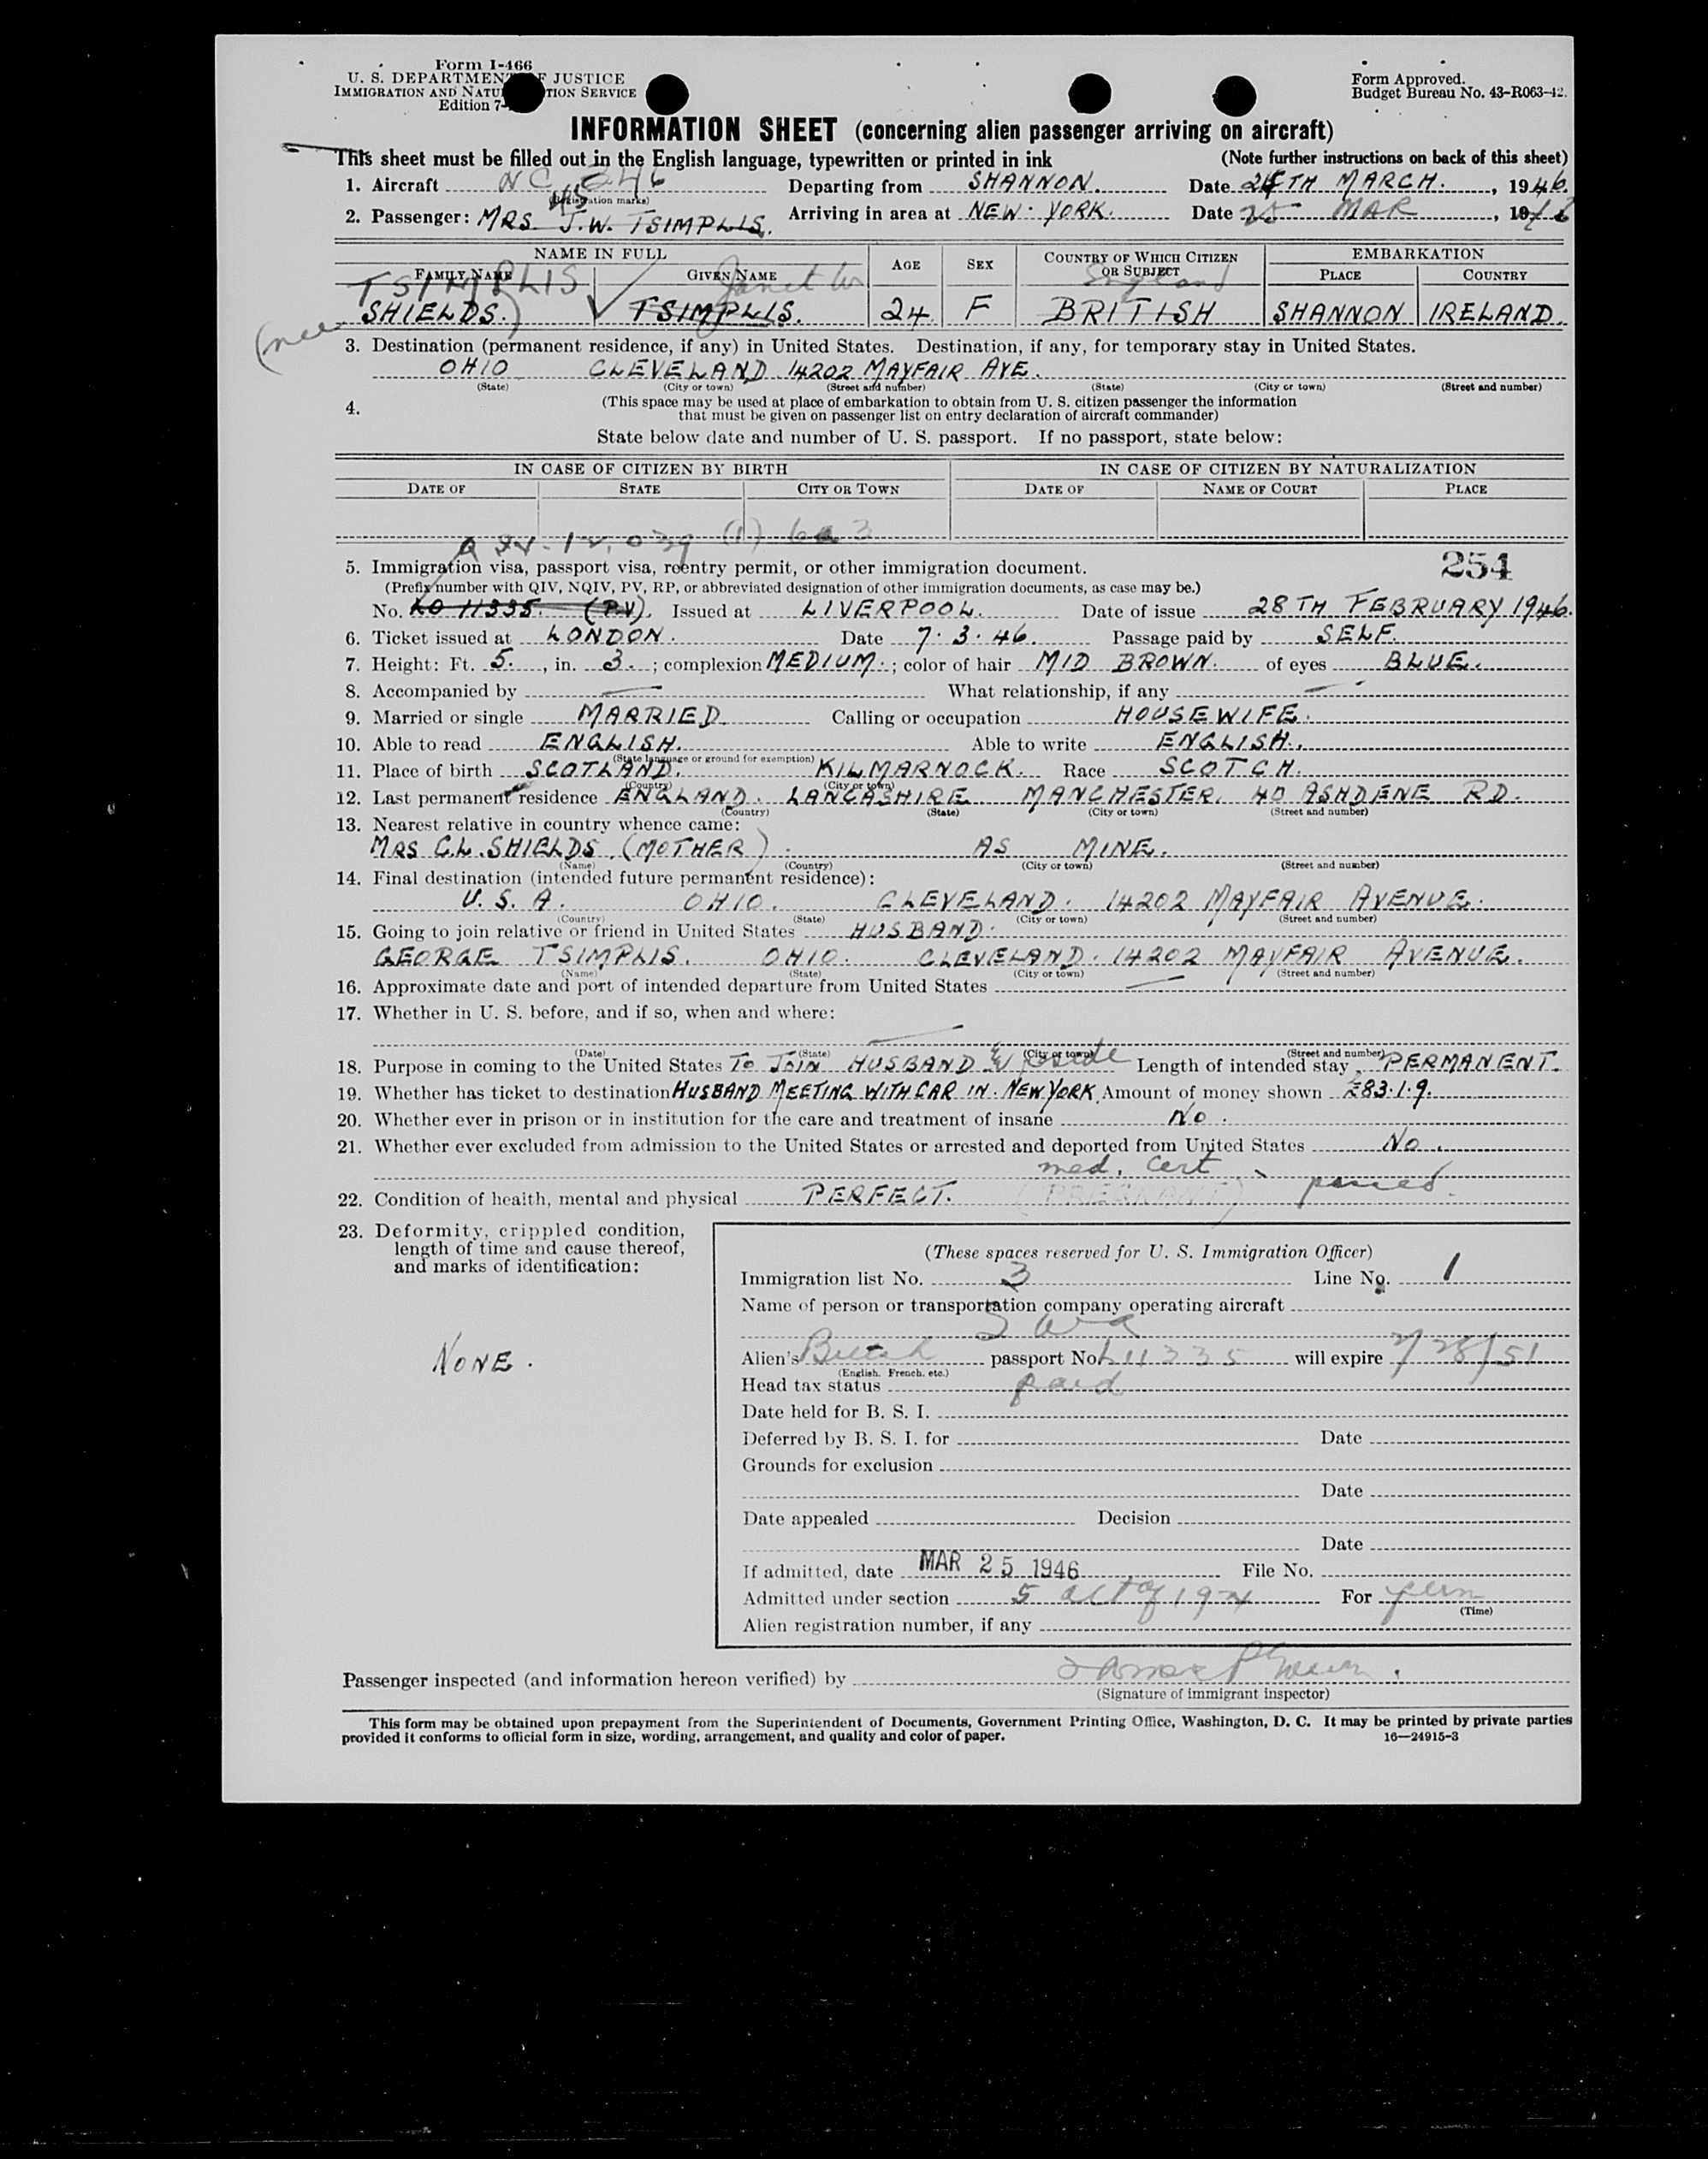 Form I-466
U. S. DEPARTMENT OF JUSTICE
IMMIGRATION AND NATU TION SERVICE
Edition 7-
Form Approved.
Budget Bureau No. 43-R063-42.
INFORMATION SHEET (concerning alien passenger arriving on aircraft)
This sheet must be filled out in the English language, typewritten or printed in ink (Note further instructions on back of this sheet)
1. Aircraft NC 246 Departing from SHANNON. Date TH MARCH., 1946.
(Registration marks)
2. Passenger: MRS. J.W. TSIMPLIS. Arriving in area at NEW YORK. Date 25 MAR, 1946
NAME IN FULL AGE SEX COUNTRY OF WHICH CITIZEN OR SUBJECT EMBARKATION
FAMILY NAME GIVEN NAME PLACE COUNTRY
TSIMPLIS Janet W England
(nee SHIELDS.) TSIMPLIS. 24 F BRITISH SHANNON IRELAND.
3. Destination (permanent residence, if any) in United States. Destination, if any, for temporary stay in United States.
OHIO CLEVELAND 14202 MAYFAIR AVE.
(State) (City or town) (Street and number) (State) (City or town) (Street and number)
4. (This space may be used at place of embarkation to obtain from U. S. citizen passenger the information
that must be given on passenger list on entry declaration of aircraft commander)
State below date and number of U. S. passport. If no passport, state below:
IN CASE OF CITIZEN BY BIRTH IN CASE OF CITIZEN BY NATURALIZATION
DATE OF STATE CITY OR TOWN DATE OF NAME OF COURT PLACE
254
5. Immigration visa, passport visa, reentry permit, or other immigration document.
(Prefix number with QIV, NQIV, PV, RP, or abbreviated designation of other immigration documents, as case may be.)
No. LO 11335. (PV). Issued at LIVERPOOL. Date of issue 28TH FEBRUARY 1946.
6. Ticket issued at LONDON. Date 7.3.46. Passage paid by SELF.
7. Height: Ft. 5., in. 3.; complexion MEDIUM.; color of hair MID BROWN. of eyes BLUE.
8. Accompanied by — What relationship, if any —
9. Married or single MARRIED. Calling or occupation HOUSEWIFE.
10. Able to read ENGLISH. Able to write ENGLISH.
(State language or ground for exemption)
11. Place of birth SCOTLAND. KILMARNOCK. Race SCOTCH.
(Country) (City or town)
12. Last permanent residence ENGLAND. LANCASHIRE MANCHESTER. 40 ASHDENE RD.
(Country) (State) (City or town) (Street and number)
13. Nearest relative in country whence came:
MRS C.L. SHIELDS. (MOTHER). AS MINE.
(Name) (Country) (City or town) (Street and number)
14. Final destination (intended future permanent residence):
U.S.A. OHIO. CLEVELAND. 14202 MAYFAIR AVENUE.
(Country) (State) (City or town) (Street and number)
15. Going to join relative or friend in United States HUSBAND.
GEORGE TSIMPLIS. OHIO. CLEVELAND. 14202 MAYFAIR AVENUE.
(Name) (State) (City or town) (Street and number)
16. Approximate date and port of intended departure from United States —
17. Whether in U. S. before, and if so, when and where:
—
(Date) (State) (City or town) (Street and number)
18. Purpose in coming to the United States TO JOIN HUSBAND & reside Length of intended stay PERMANENT.
19. Whether has ticket to destination HUSBAND MEETING WITH CAR IN NEW YORK. Amount of money shown £83.1.9.
20. Whether ever in prison or in institution for the care and treatment of insane NO.
21. Whether ever excluded from admission to the United States or arrested and deported from United States NO.
med. cert
22. Condition of health, mental and physical PERFECT. (PREGNANT) passed.
23. Deformity, crippled condition,
length of time and cause thereof,
and marks of identification:
NONE.
(These spaces reserved for U. S. Immigration Officer)
Immigration list No. 3 Line No. 1
Name of person or transportation company operating aircraft
TWA
Alien's British passport No. L11335 will expire 2/28/51
(English, French, etc.)
Head tax status paid
Date held for B. S. I.
Deferred by B. S. I. for Date
Grounds for exclusion
Date
Date appealed Decision
Date
If admitted, date MAR 25 1946 File No.
Admitted under section 5 act of 1924 For perm
(Time)
Alien registration number, if any
Passenger inspected (and information hereon verified) by
(Signature of immigrant inspector)
This form may be obtained upon prepayment from the Superintendent of Documents, Government Printing Office, Washington, D. C. It may be printed by private parties
provided it conforms to official form in size, wording, arrangement, and quality and color of paper. 16—24915-3